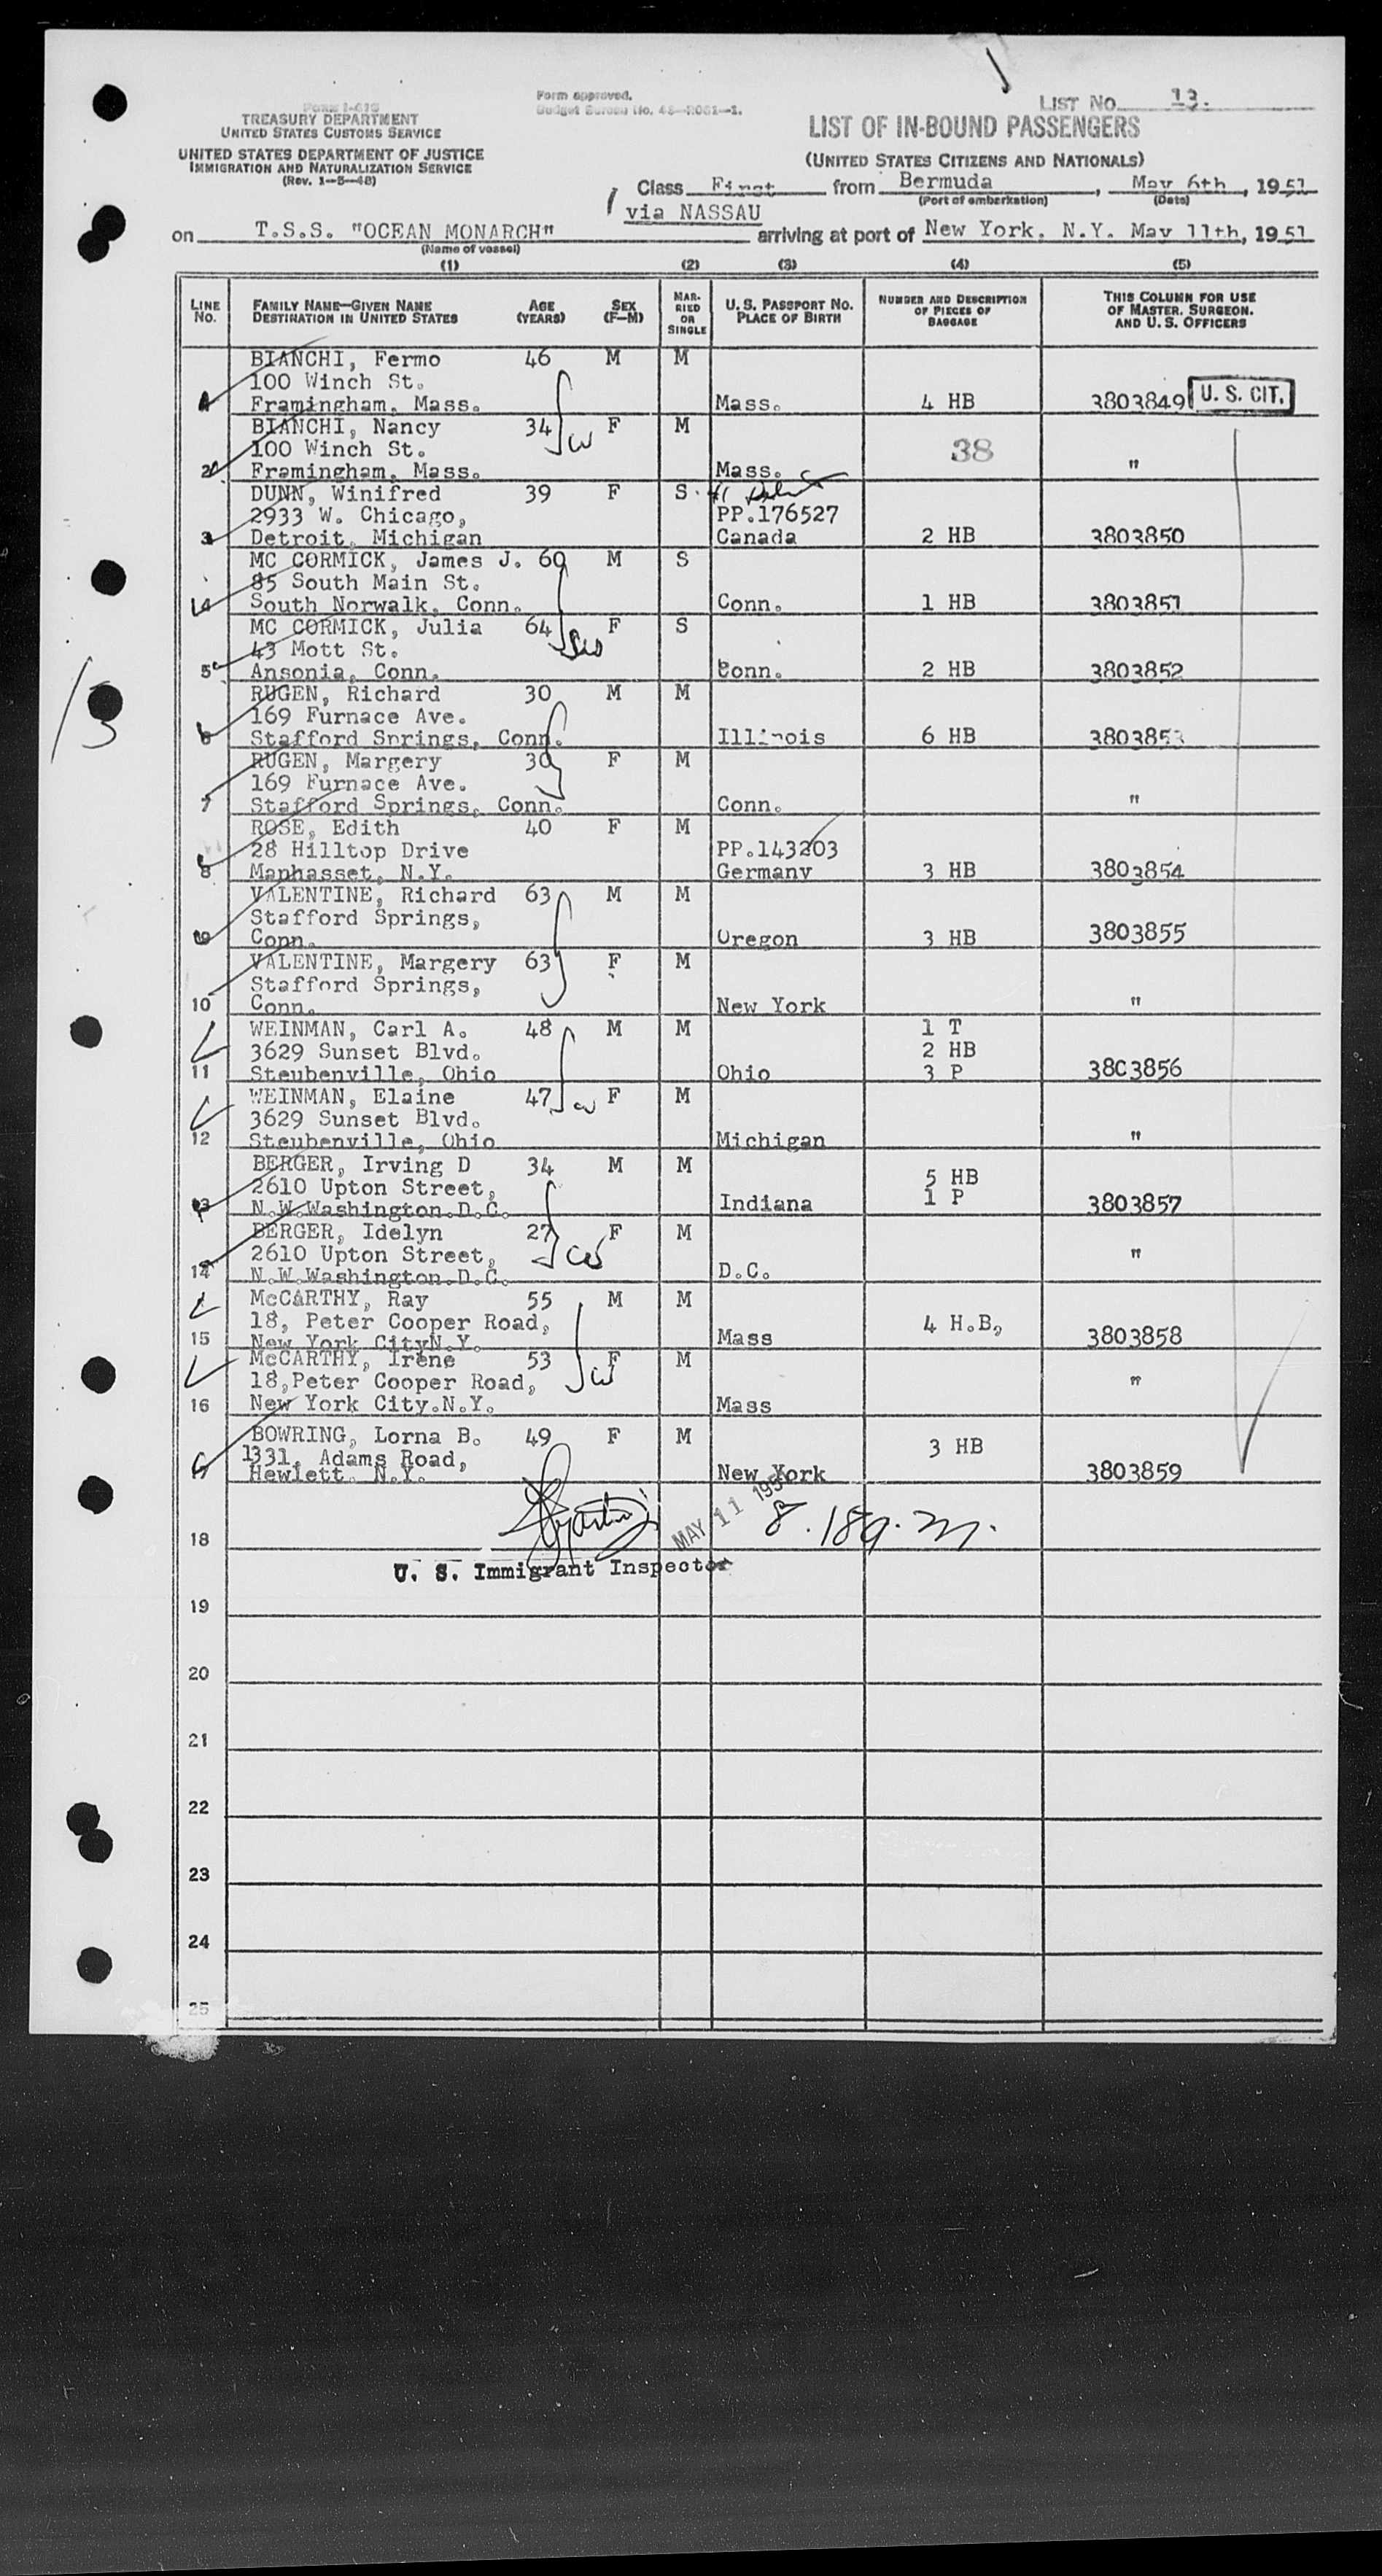 Form I-415
TREASURY DEPARTMENT
UNITED STATES CUSTOMS SERVICE
UNITED STATES DEPARTMENT OF JUSTICE
IMMIGRATION AND NATURALIZATION SERVICE
(Rev. 1-5-48)
Form approved.
Budget Bureau No. 43-R081-1.
LIST No. 13.
LIST OF IN-BOUND PASSENGERS
(UNITED STATES CITIZENS AND NATIONALS)
Class First from Bermuda, May 6th, 1951
(Port of embarkation) (Date)
via NASSAU
on T.S.S. "OCEAN MONARCH" arriving at port of New York. N.Y. May 11th, 1951
(Name of vessel)
(1) (2) (3) (4) (5)
LINE No. FAMILY NAME—GIVEN NAME DESTINATION IN UNITED STATES AGE (YEARS) SEX (F-M) MARRIED OR SINGLE U. S. PASSPORT NO. PLACE OF BIRTH NUMBER AND DESCRIPTION OF PIECES OF BAGGAGE THIS COLUMN FOR USE OF MASTER, SURGEON, AND U. S. OFFICERS
BIANCHI, Fermo 46 M M
100 Winch St.
1 Framingham, Mass. Mass. 4 HB 3803849 U. S. CIT.
BIANCHI, Nancy 34 W F M
100 Winch St. 38
2 Framingham, Mass. Mass. "
DUNN, Winifred 39 F S
2933 W. Chicago, PP.176527
3 Detroit, Michigan Canada 2 HB 3803850
MC CORMICK, James J. 60 M S
85 South Main St.
4 South Norwalk, Conn. Conn. 1 HB 3803851
MC CORMICK, Julia 64 Sis F S
43 Mott St.
5 Ansonia, Conn. Conn. 2 HB 3803852
RUGEN, Richard 30 M M
169 Furnace Ave.
6 Stafford Springs, Conn. Illinois 6 HB 3803853
RUGEN, Margery 30 F M
169 Furnace Ave.
7 Stafford Springs, Conn. Conn. "
ROSE, Edith 40 F M
28 Hilltop Drive PP.143203
8 Manhasset, N.Y. Germany 3 HB 3803854
VALENTINE, Richard 63 M M
Stafford Springs,
9 Conn. Oregon 3 HB 3803855
VALENTINE, Margery 63 F M
Stafford Springs,
10 Conn. New York "
WEINMAN, Carl A. 48 M M 1 T
3629 Sunset Blvd. 2 HB
11 Steubenville, Ohio Ohio 3 P 3803856
WEINMAN, Elaine 47 W F M
3629 Sunset Blvd.
12 Steubenville, Ohio Michigan "
BERGER, Irving D 34 M M
2610 Upton Street, 5 HB
13 N.W.Washington.D.C. Indiana 1 P 3803857
BERGER, Idelyn 27 W F M
2610 Upton Street, "
14 N.W.Washington.D.C. D.C.
McCARTHY, Ray 55 M M
18, Peter Cooper Road, 4 H.B,
15 New York CityN.Y. Mass 3803858
McCARTHY, Irene 53 W F M
18,Peter Cooper Road, "
16 New York City.N.Y. Mass
BOWRING, Lorna B. 49 F M
1331, Adams Road, 3 HB
Hewlett. N.Y. New York 3803859
MAY 11 195
18
U. S. Immigrant Inspector
19
20
21
22
23
24
25
13